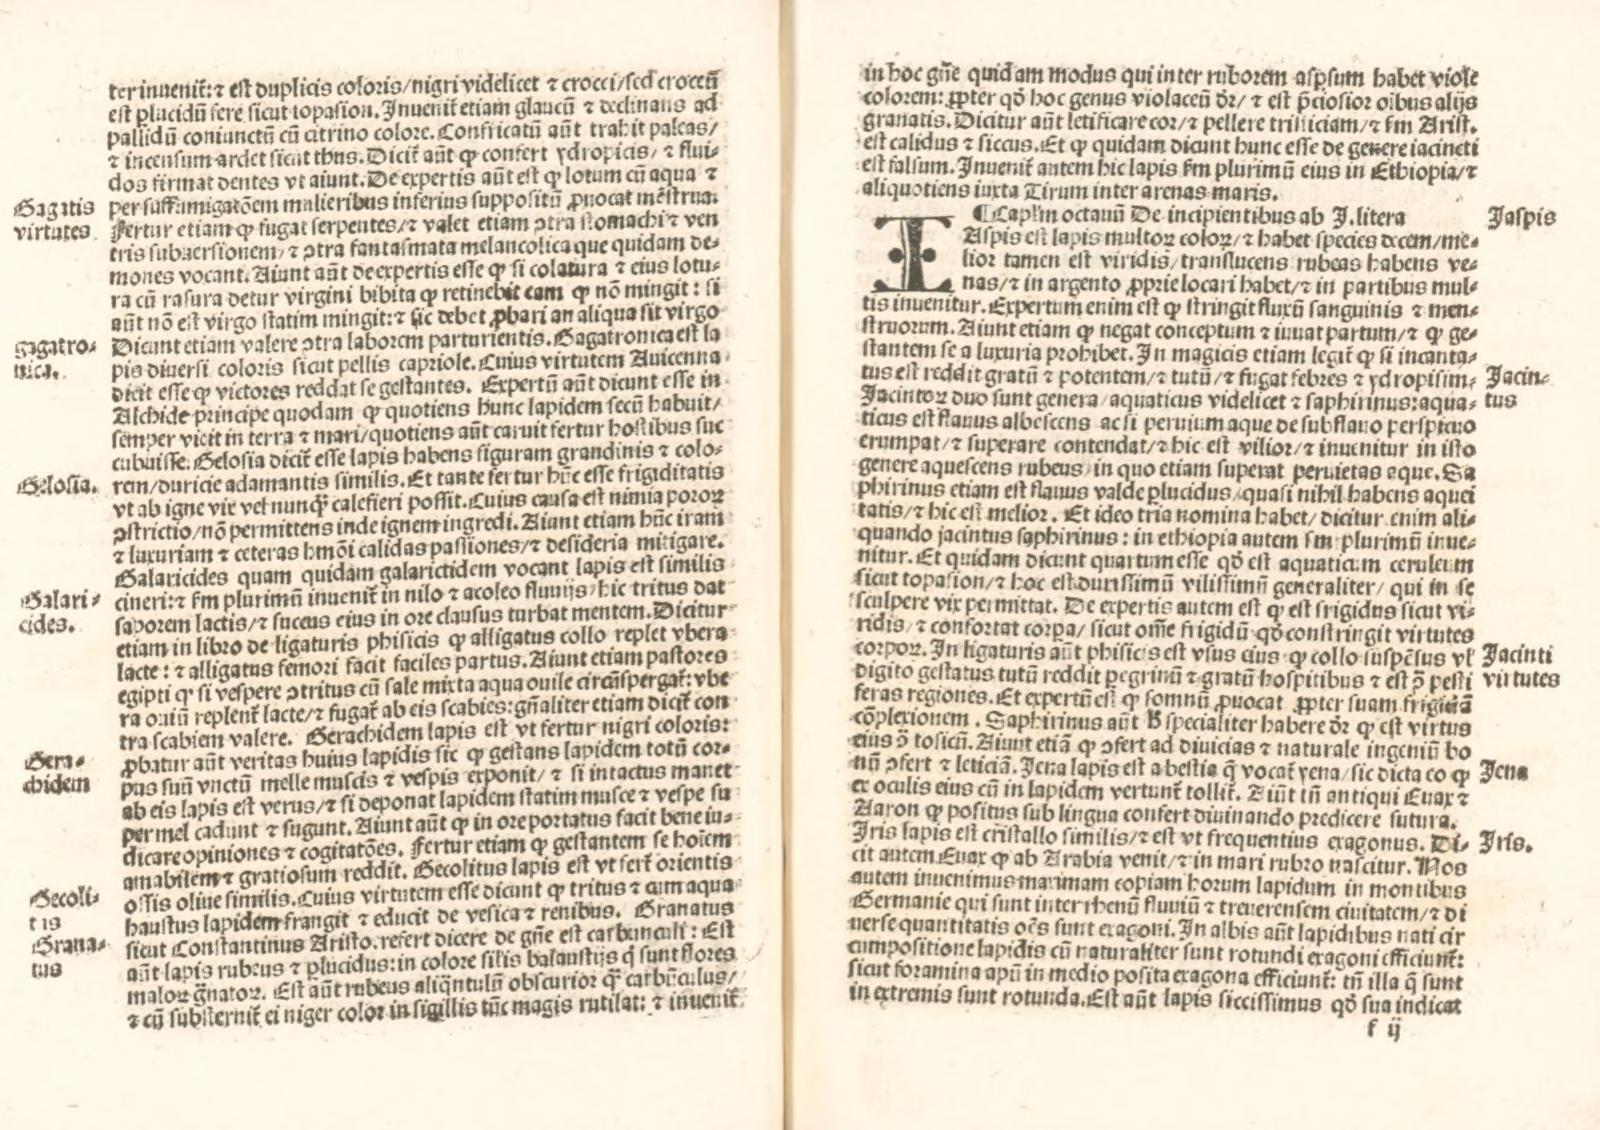 ter inuenit̃: ⁊ est duplicis coloris/nigri videlicet ⁊ crocci/sed croceũ
est plucidũ fere sicut topasion. Inuenit̃ etiam glaucũ ⁊ declinans ad
pallidũ coniunctũ cũ citrino colore. Confricatũ aũt trahit paleas/
⁊ incensum ardet sicut thus. Dicit̃ aũt ꝙ confert ydropicis/ ⁊ flui-
dos firmat dentes vt aiunt. De expertis aũt est ꝙ lotum cũ aqua ⁊
Gagatis
virtutes
per suffumigatõem mulieribus inferius suppositũ ꝓuocat mẽstrua.
Fertur etiam ꝙ fugat serpentes/⁊ valet etiam ꝯtra stomachi ⁊ ven
tris subuersionem/ ⁊ ꝯtra fantasmata melancolica que quidam de-
mones vocant. Aiunt aũt de expertis esse ꝙ si colatura ⁊ eius lotu-
ra cũ rasura detur virgini bibita ꝙ retinebit eam ꝙ nõ mingit: si
aũt nõ est virgo statim mingit: ⁊ sic debet ꝓbari an aliqua sit virgo
gagatro-
nica.
Dicunt etiam valere ꝯtra laborem parturientis. Gagatronica est la
pis diuersi coloris sicut pellis capriole. Cuius virtutem Auicenna
dicit esse ꝙ victores reddat se gestantes. Expertũ aũt dicunt esse in
Alchide principe quodam ꝙ quotiens hunc lapidem secũ habuit/
semper vicit in terra ⁊ mari/quotiens aũt caruit fertur hostibus suc
cubuisse. Gelosia dicit̃ esse lapis habens figuram grandinis ⁊ colo-
Gelosia.
rem/duricie adamantis similis. Et tante fertur hũc esse frigiditatis
vt ab igne vix vel nunq̃ calefieri possit. Cuius causa est nimia poroꝝ
ꝯstrictio/nõ permittens inde ignem ingredi. Aiunt etiam hũc iram
⁊ luxuriam ⁊ ceteras hmõi calidas passiones/⁊ desideria mitigare.
Galaricides quam quidam galarictidem vocant lapis est similis
Galari-
cides.
cineri: ⁊ fm plurimũ inuenit̃ in nilo ⁊ acoleo fluuijs/hic tritus dat
saporem lactis/⁊ succus eius in ore clausus turbat mentem. Dicitur
etiam in libro de ligaturis phisicis ꝙ alligatus collo replet vbera
lacte: ⁊ alligatus femori facit faciles partus. Aiunt etiam pastores
egipti ꝙ si vespere ꝯtritus cũ sale mixta aqua ouile circũspergat̃: vbe
ra ouiũ replent̃ lacte/⁊ fugat̃ ab eis scabies: gñaliter etiam dicit̃ con
tra scabiem valere. Gerachidem lapis est vt fertur nigri coloris:
Gera-
chidem
ꝓbatur aũt veritas huius lapidis sic ꝙ gestans lapidem totũ cor-
pus suũ vnctũ melle muscis ⁊ vespis exponit/ ⁊ si intactus manet
ab eis lapis est verus/⁊ si deponat lapidem statim musce ⁊ vespe su
per mel cadunt ⁊ sugunt. Aiunt aũt ꝙ in ore portatus facit bene iu-
dicare opiniones ⁊ cogitatões. Fertur etiam ꝙ gestantem se hoĩem
amabilem ⁊ gratiosum reddit. Gecolitus lapis est vt fert̃ orientis
Gecoli-
tis
ossis oliue similis. Cuius virtutem esse dicunt ꝙ tritus ⁊ cum aqua
haustus lapidem frangit ⁊ educit de vesica ⁊ renibus. Granatus
Grana-
tus
sicut Constantinus Aristo. refert dicere de gñe est carbunculi: Est
aũt lapis rubeus ⁊ plucidus: in colore silis balaustijs q̃ sunt flores
maloꝝ g̃natoꝝ. Est aũt rubeus aliq̃ntulũ obscurior q̃ carbũculus/
⁊ cũ substernit̃ ei niger color in sigillis tũc magis rutilat: ⁊ inuenit̃
in hoc gñe quidam modus qui inter ruborem aspsum habet viole
colorem: ꝓpter qđ hoc genus violaceũ dr̃/ ⁊ est p̃ciosior oĩbus alijs
granatis. Dicitur aũt letificare cor/⁊ pellere tristiciam/⁊ fm Arist.
est calidus ⁊ siccus. Et ꝙ quidam dicunt hunc esse de genere iacineti
est falsum. Inuenit̃ autem hic lapis fm plurimũ eius in Ethiopia/⁊
aliquotiens iuxta Tirum inter arenas maris.
¶ Caplm octauũ De incipientibus ab I. litera
Jaspis
IAspis est lapis multoꝝ coloꝝ/⁊ habet species decem/me-
lior tamen est viridis/translucens rubeas habens ve-
nas/⁊ in argento ꝓprie locari habet/⁊ in partibus mul-
tis inuenitur. Expertum enim est ꝙ stringit fluxũ sanguinis ⁊ men-
struorum. Aiunt etiam ꝙ negat conceptum ⁊ iuuat partum/⁊ ꝙ ge-
stantem se a luxuria prohibet. In magicis etiam legit̃ ꝙ si incanta-
tus est reddit gratũ ⁊ potentem/⁊ tutũ/⁊ fugat febres ⁊ ydropisim.
Jacin-
tus
Jacintoꝝ duo sunt genera/aquaticus videlicet ⁊ saphirinus: aqua-
ticus est flauus albescens ac si peruium aque de subflauo perspicuo
erumpat/⁊ superare contendat/⁊ hic est vilior/⁊ inuenitur in isto
genere aquescens rubeus/in quo etiam superat peruietas aque. Sa
phirinus etiam est flauus valde plucidus/quasi nihil habens aquei
tatis/⁊ hic est melior. Et ideo tria nomina habet/ dicitur enim ali-
quando jacintus saphirinus: in ethiopia autem fm plurimũ inue-
nitur. Et quidam dicunt quartum esse qđ est aquaticum ceruleum
sicut topasion/⁊ hoc est durissimũ vilissimũ generaliter/ qui in se
sculpere vix permittat. De expertis autem est ꝙ est frigidus sicut vi-
ridis/⁊ confortat corpa/ sicut om̃e frigidũ qđ constringit virtutes
Jacinti
virtutes
corpoꝝ. In ligaturis aũt phisicis est vsus eius ꝙ collo suspẽsus vl̃
digito gestatus tutũ reddit pegrinũ ⁊ gratũ hospitibus ⁊ est ꝯ̃ pesti
feras regiones. Et expertũ est ꝙ somnũ ꝓuocat ꝓpter suam frigidã
cõplexionem. Saphirinus aũt specialiter habere dr̃ ꝙ est virtus
eius ꝯ̃ tosicũ. Aiunt etiã ꝙ ꝯfert ad diuicias ⁊ naturale ingeniũ bo
Jena
nũ ꝯfert ⁊ leticiã. Jena lapis est a bestia q̃ vocat̃ yena/sic dicta eo ꝙ
ex oculis eius cũ in lapidem vertunt̃ tollit̃. Aiũt tñ antiqui Euax ⁊
Aaron ꝙ positus sub lingua confert diuinando predicere futura.
Iris.
Iris lapis est cristallo similis/⁊ est vt frequentius exagonus. Di-
cit autem Euax ꝙ ab Arabia venit/⁊ in mari rubro nascitur. Nos
autem inuenimus maximam copiam horum lapidum in montibus
Germanie qui sunt inter rhenũ fluuiũ ⁊ treuerensem ciuitatem/⁊ di
uerse quantitatis oẽs sunt exagoni. In albis aũt lapidibus nati cir
cumpositione lapidis cũ naturaliter sunt rotundi exagoni efficiunt̃:
sicut foramina apũ in medio posita exagona efficiunt̃: tñ illa q̃ sunt
in extremis sunt rotunda. Est aũt lapis siccissimus qđ sua indicat
f ij